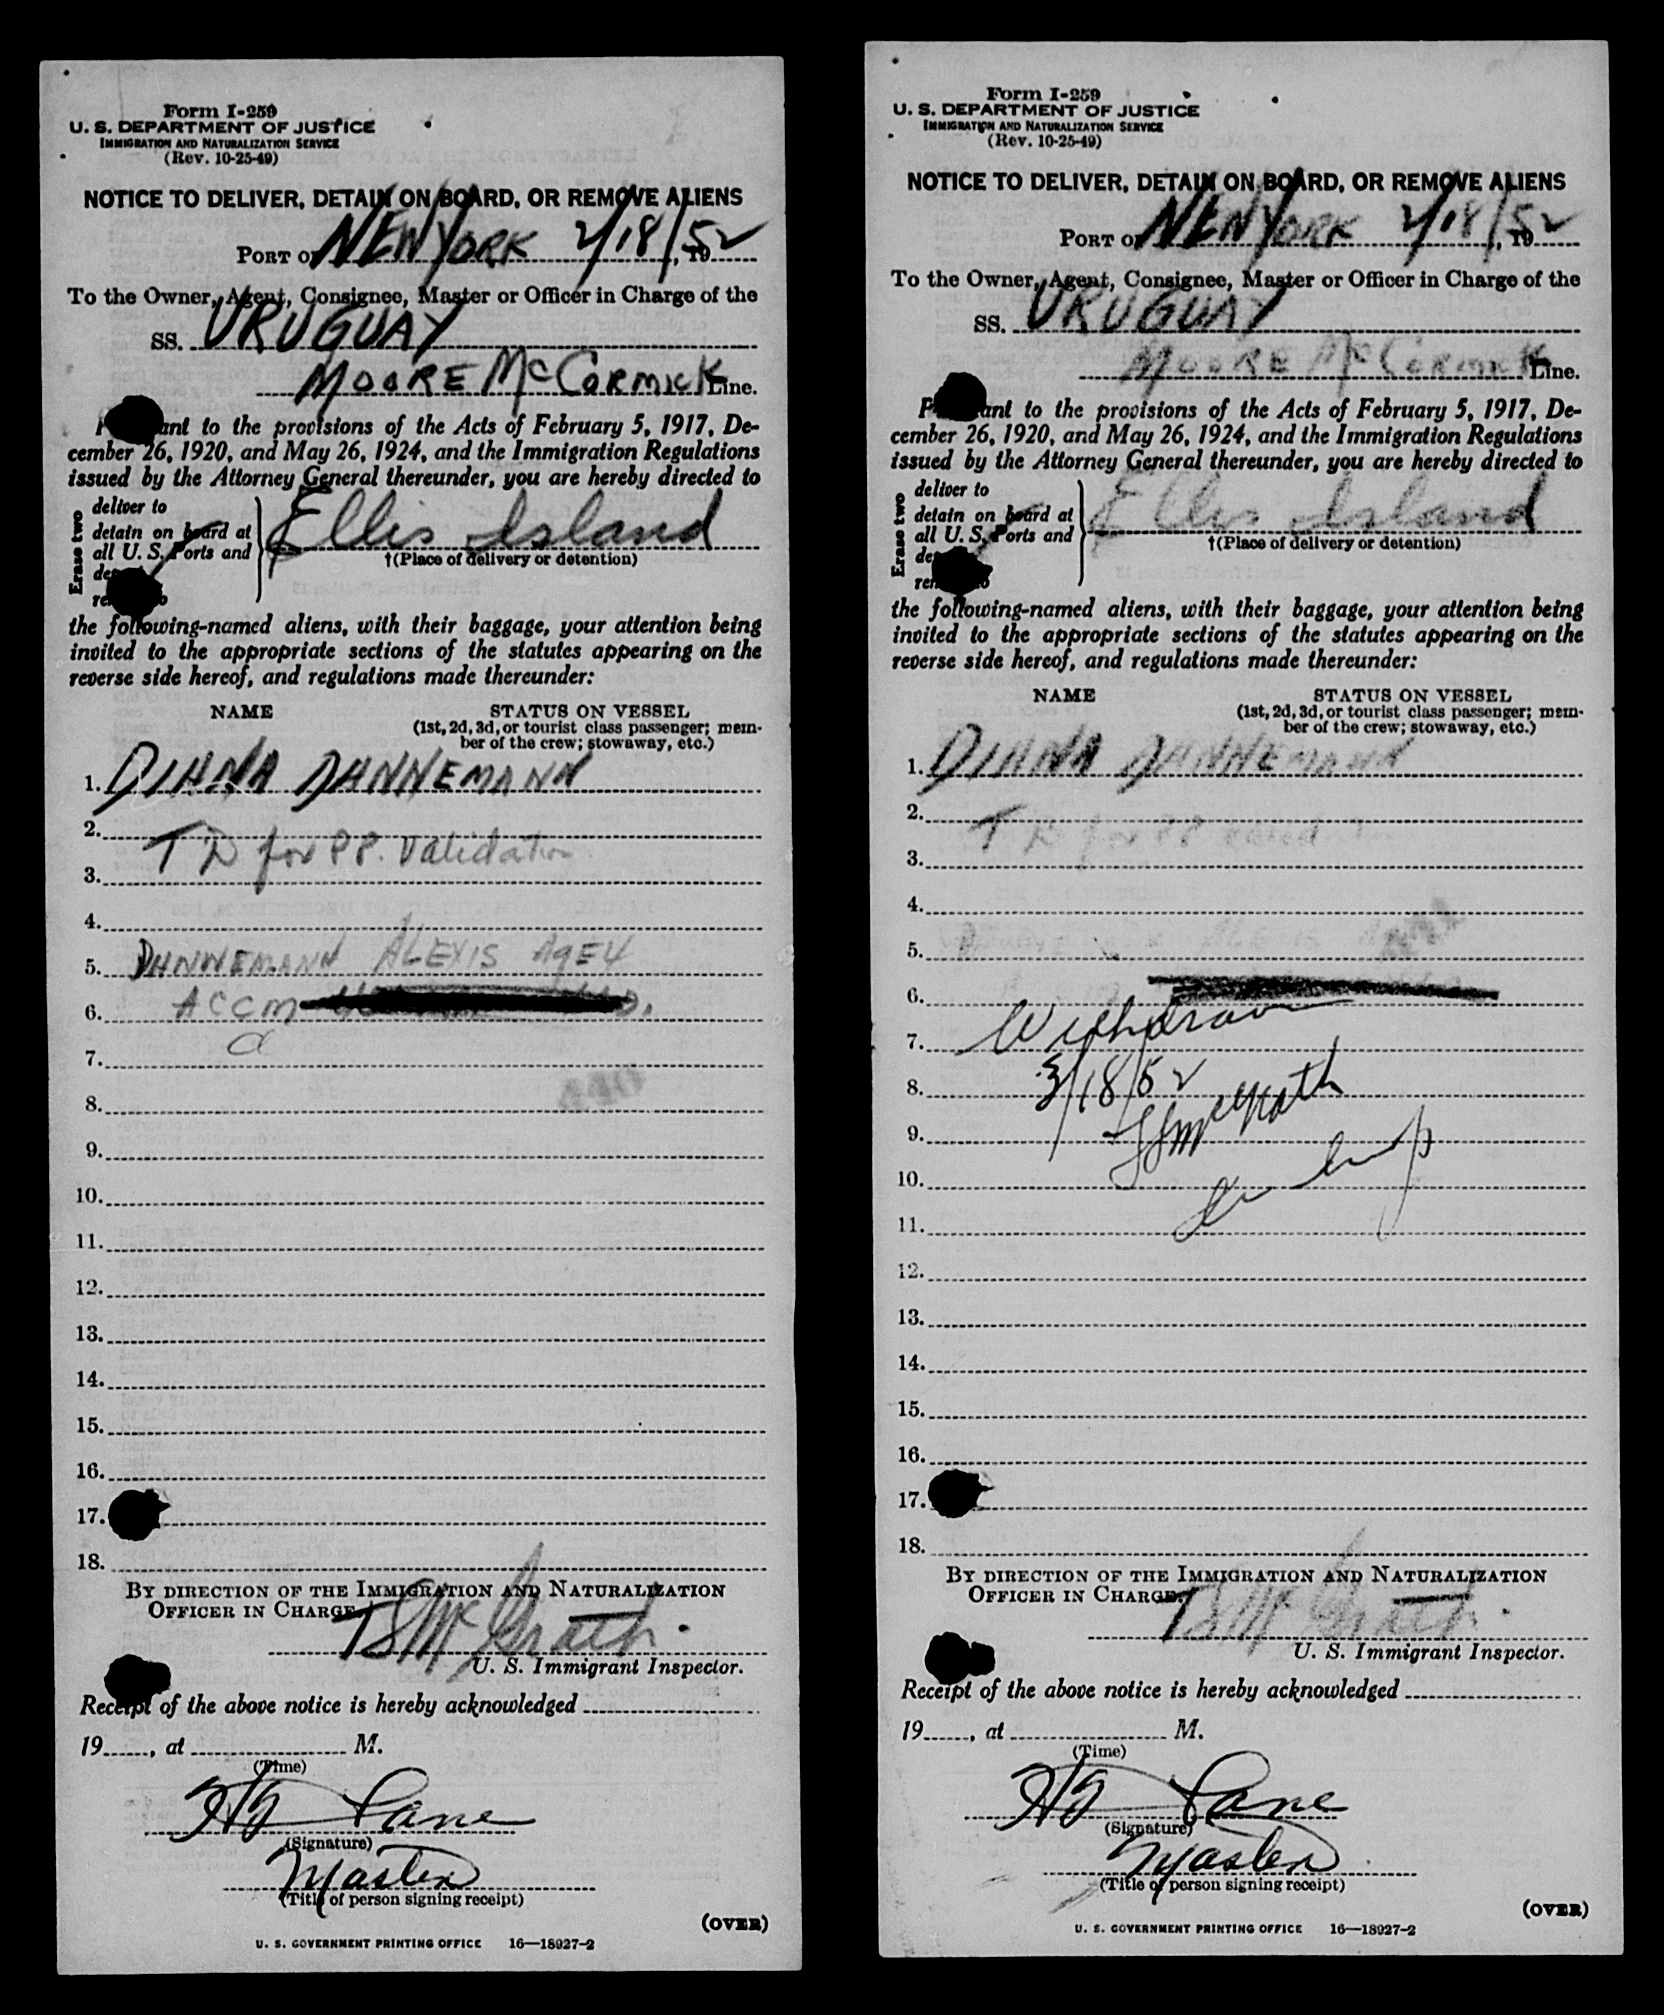 Form I-259
U. S. DEPARTMENT OF JUSTICE
IMMIGRATION AND NATURALIZATION SERVICE
(Rev. 10-25-49)
NOTICE TO DELIVER, DETAIN ON BOARD, OR REMOVE ALIENS
PORT OF NEW YORK 2/18/52, 19
To the Owner, Agent, Consignee, Master or Officer in Charge of the
SS. URUGUAY
MOORE McCORMICK Line.
Pursuant to the provisions of the Acts of February 5, 1917, De-
cember 26, 1920, and May 26, 1924, and the Immigration Regulations
issued by the Attorney General thereunder, you are hereby directed to
Erase two
deliver to
detain on board at
all U. S. Ports and
Ellis Island
†(Place of delivery or detention)
the following-named aliens, with their baggage, your attention being
invited to the appropriate sections of the statutes appearing on the
reverse side hereof, and regulations made thereunder:
NAME STATUS ON VESSEL
(1st, 2d, 3d, or tourist class passenger; mem-
ber of the crew; stowaway, etc.)
1. DIANA DANNEMANN
2.
T D for PP. Validation
3.
4.
5. DANNEMANN ALEXIS AgE 4
6. ACCM
7.
8.
9.
10.
11.
12.
13.
14.
15.
16.
17.
18.
BY DIRECTION OF THE IMMIGRATION AND NATURALIZATION
OFFICER IN CHARGE.
McGrath
U. S. Immigrant Inspector.
Receipt of the above notice is hereby acknowledged
19, at M.
(Time)
Lane
(Signature)
Master
(Title of person signing receipt)
(OVER)
U. S. GOVERNMENT PRINTING OFFICE 16—18927-2
Form I-259
U. S. DEPARTMENT OF JUSTICE
IMMIGRATION AND NATURALIZATION SERVICE
(Rev. 10-25-49)
NOTICE TO DELIVER, DETAIN ON BOARD, OR REMOVE ALIENS
PORT OF NEW YORK 2/18/52, 19
To the Owner, Agent, Consignee, Master or Officer in Charge of the
SS. URUGUAY
MOORE McCORMICK Line.
Pursuant to the provisions of the Acts of February 5, 1917, De-
cember 26, 1920, and May 26, 1924, and the Immigration Regulations
issued by the Attorney General thereunder, you are hereby directed to
Erase two
deliver to
detain on board at
all U. S. Ports and
Ellis Island
†(Place of delivery or detention)
the following-named aliens, with their baggage, your attention being
invited to the appropriate sections of the statutes appearing on the
reverse side hereof, and regulations made thereunder:
NAME STATUS ON VESSEL
(1st, 2d, 3d, or tourist class passenger; mem-
ber of the crew; stowaway, etc.)
1. DIANA DANNEMANN
2.
T D for PP
3.
4.
5.
6.
7. Withdrawn
8. 3/18/52
McGrath
9.
10.
11.
12.
13.
14.
15.
16.
17.
18.
BY DIRECTION OF THE IMMIGRATION AND NATURALIZATION
OFFICER IN CHARGE.
McGrath
U. S. Immigrant Inspector.
Receipt of the above notice is hereby acknowledged
19, at M.
(Time)
Lane
(Signature)
Master
(Title of person signing receipt)
(OVER)
U. S. GOVERNMENT PRINTING OFFICE 16—18927-2